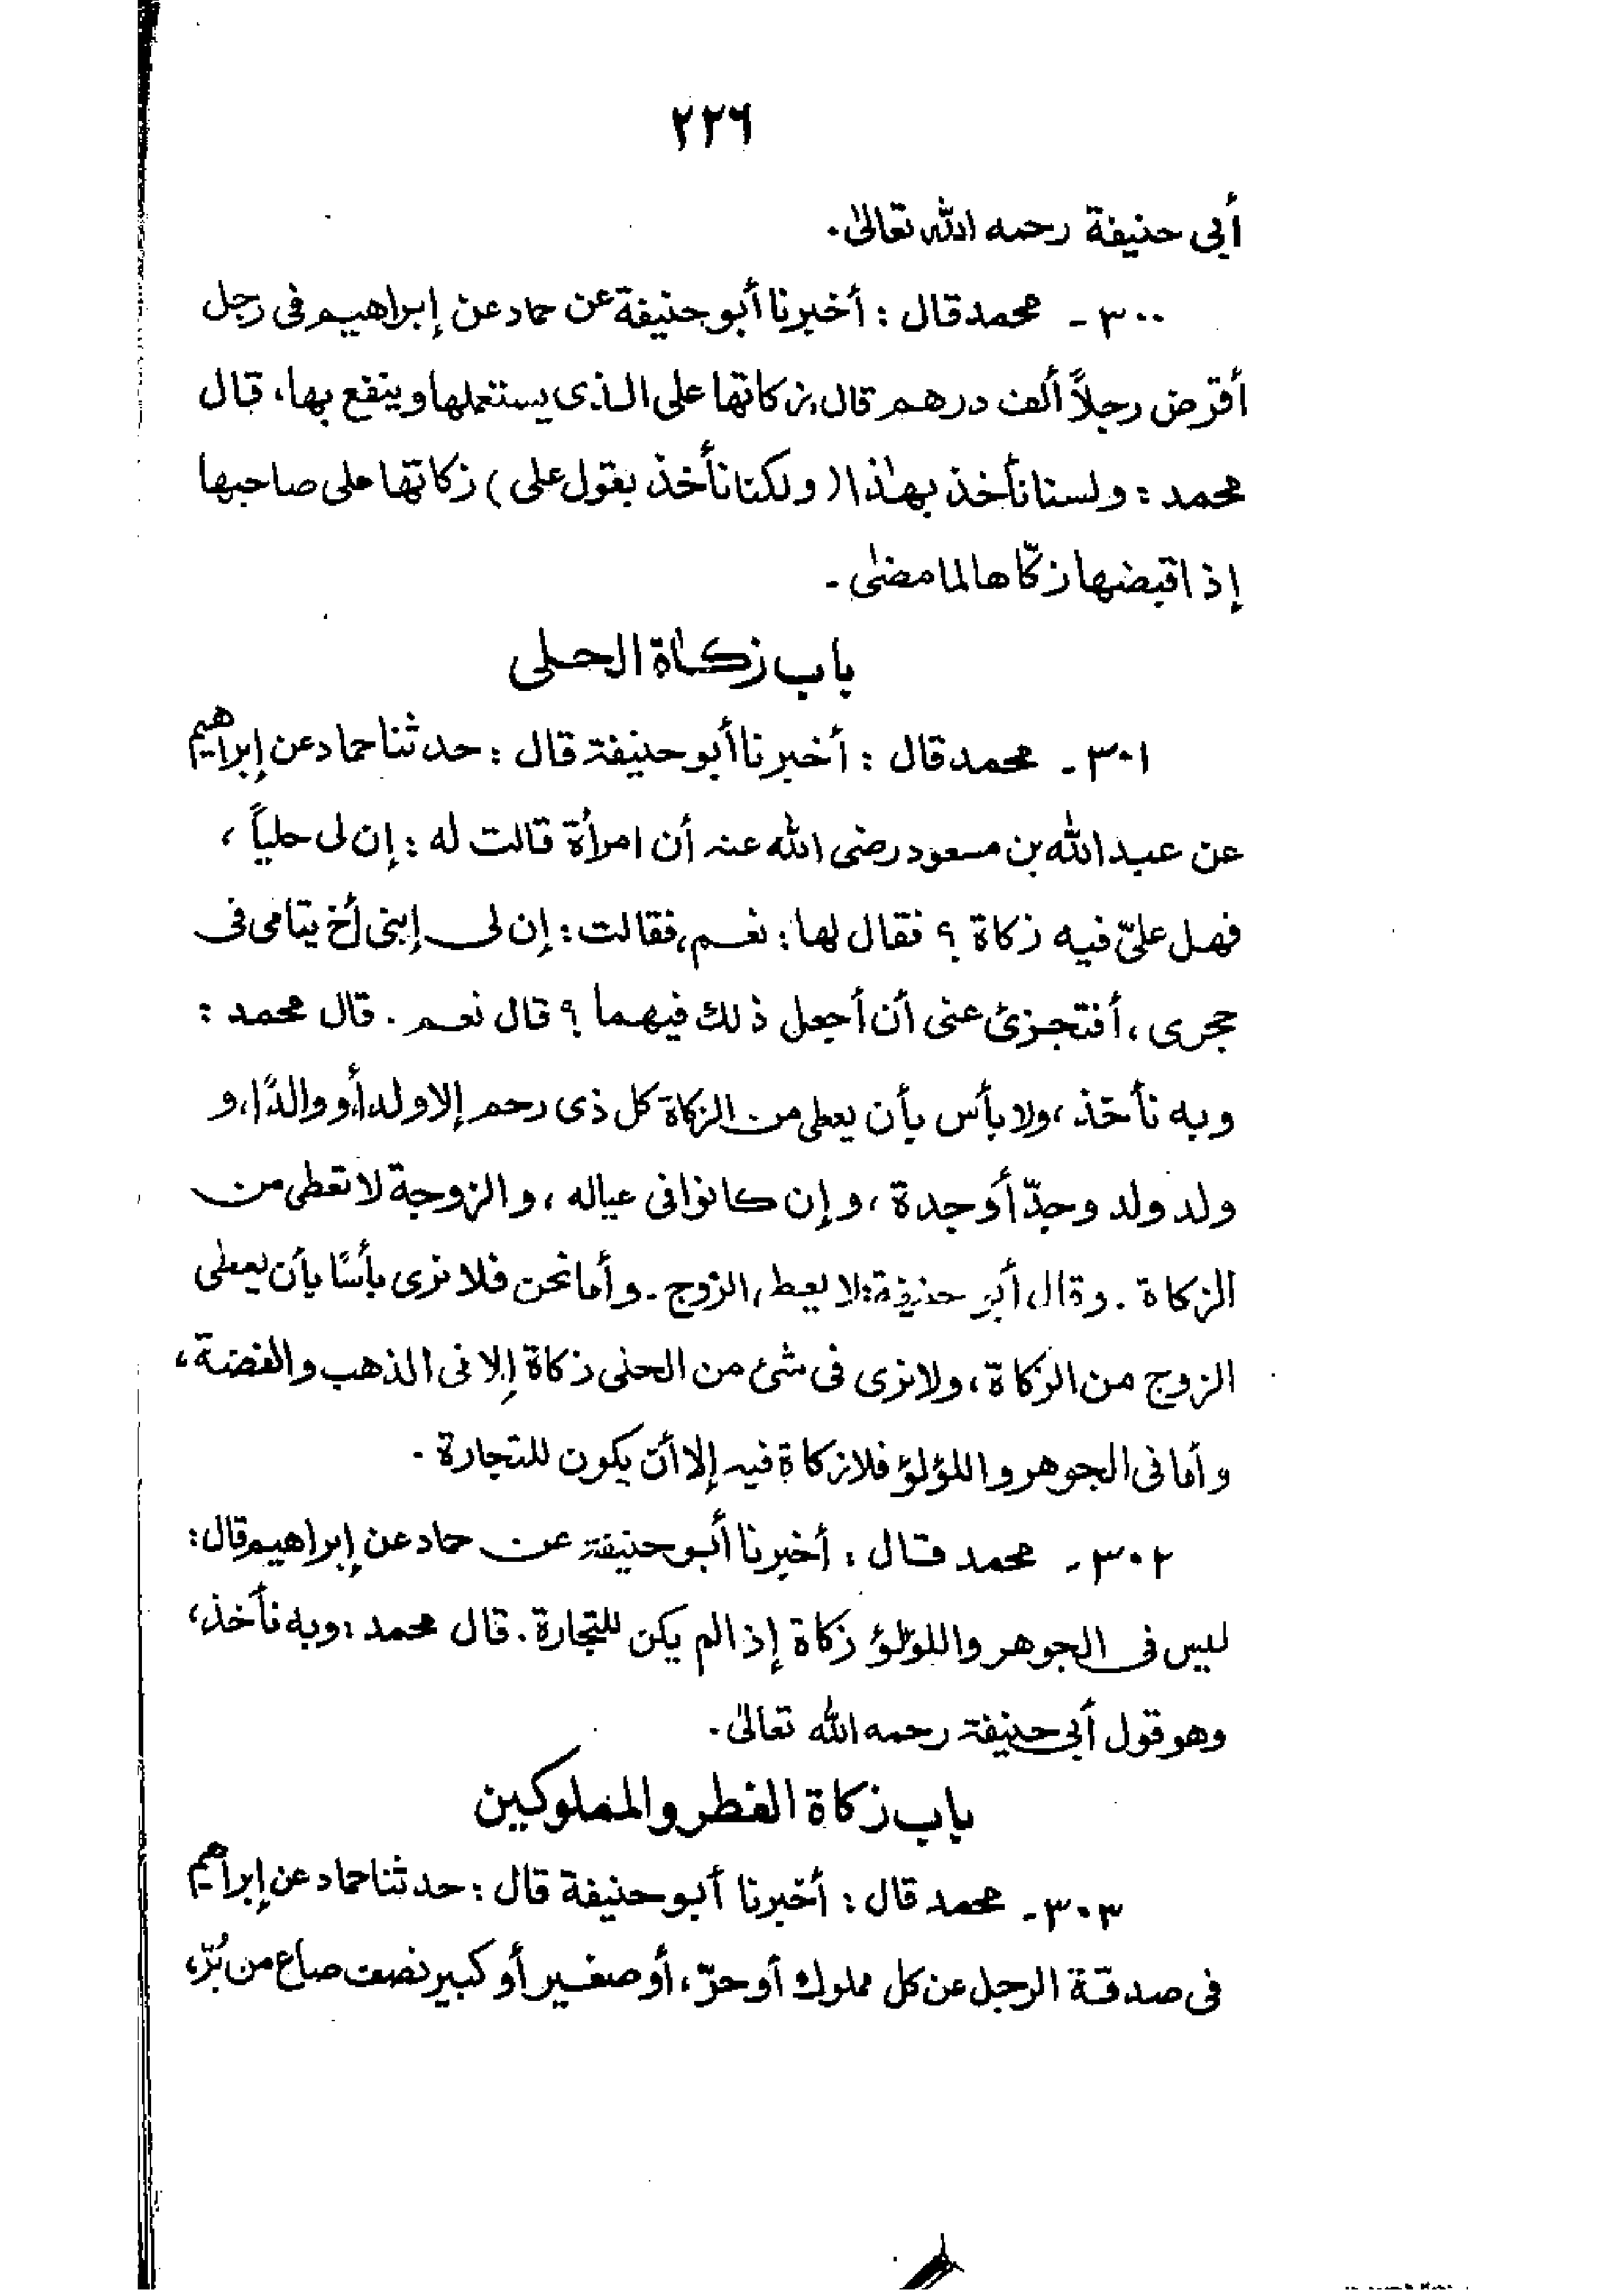 ٢٢٦
أبي حنيفة رحمه الله تعالىٰ.
٣٠٠ - محمد قال : أخبرنا أبو حنيفة عن حماد عن إبراهيم فى رجل
أقرض رجلاً ألف درهم قال: زكاتها على الذى يستعملها وينتفع بها، قال
محمد : ولسنا نأخذ بهٰذا (ولكنا نأخذ بقول على) زكاتها على صاحبها
إذا قبضها زكّاها لما مضىٰ -
باب زكاة الحلى
٣٠١ - محمد قال : أخبرنا أبو حنيفة قال : حدثنا حماد عن إبراهيم
عن عبد الله بن مسعود رضى الله عنه أن امرأة قالت له : إن لى حلياً ،
فهل علىّ فيه زكاة ؟ فقال لها : نعم، فقالت : إن لى إبنى أخ يتامى فى
حجرى ، أفتجزئ عنى أن أجعل ذلك فيهما ؟ قال نعم . قال محمد :
وبه نأخذ ، ولا بأس بأن يعطى من الزكاة كل ذى رحم إلا ولدا أو والدًا، و
ولد ولد وجدّ أو جدة ، وإن كانوا فى عياله ، والزوجة لا تعطى من
الزكاة . وقال أبو حنيفة: لا يعطى الزوج - وأما نحن فلا نرى بأسًا بأن يعطى
الزوج من الزكاة ، ولا نرى فى شئ من الحلى زكاة إلا فى الذهب والفضة ،
وأما فى الجوهر واللؤلؤ فلا زكاة فيه إلا أن يكون للتجارة -
٣٠٢ - محمد قال : أخبرنا أبو حنيفة عن حماد عن إبراهيم قال :
ليس فى الجوهر واللؤلؤ زكاة إذا لم يكن للتجارة . قال محمد : وبه نأخذ ،
وهو قول أبي حنيفة رحمه الله تعالىٰ .
باب زكاة الفطر والمملوكين
٣٠٣ - محمد قال : أخبرنا أبو حنيفة قال : حدثنا حماد عن إبراهيم
فى صدقة الرجل عن كل مملوك أو حرّ، أو صغير أو كبير نصف صاع من بُرّ،